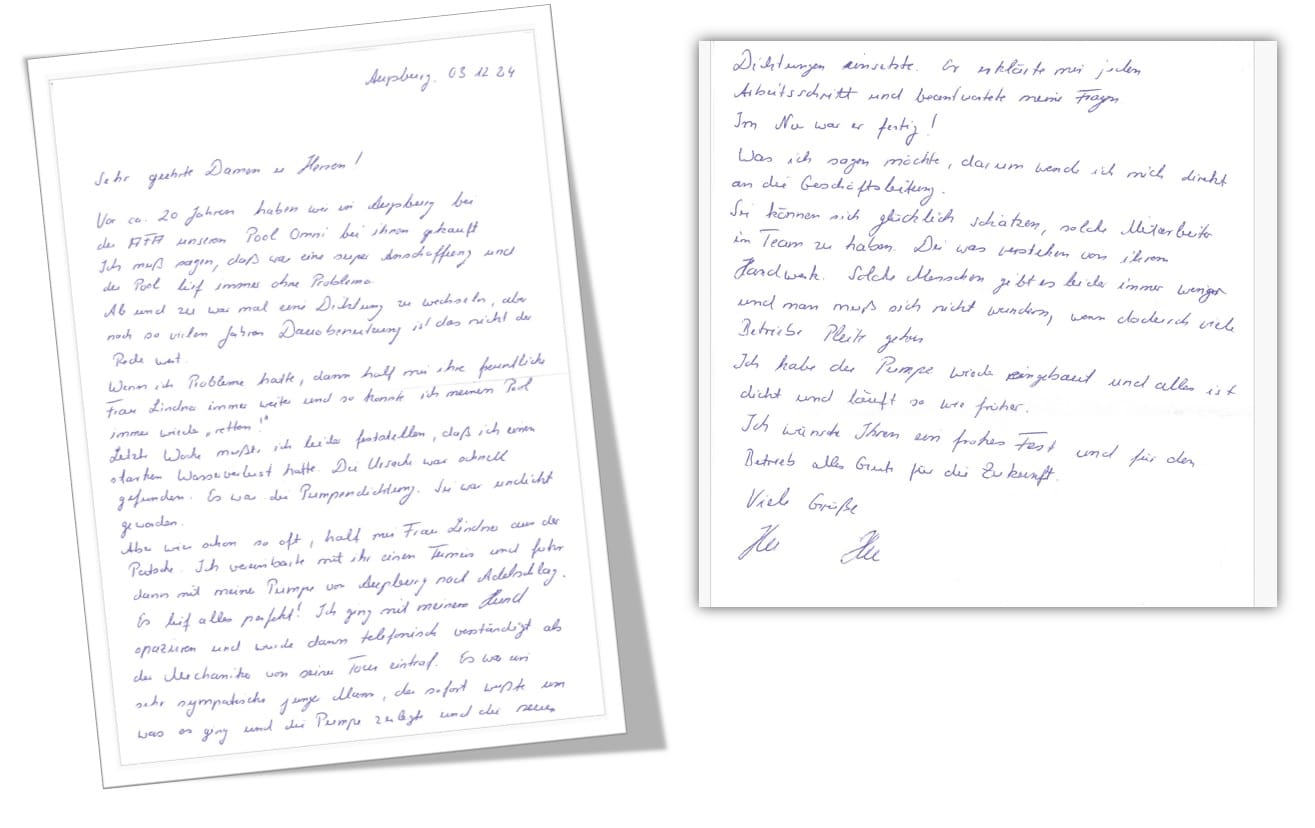 Augsburg, 03 12 24
Sehr geehrte Damen u Herren!
Vor ca. 20 Jahren haben wir in Augsburg bei
der AFA unseren Pool Omni bei ihnen gekauft
Ich muß sagen, daß war eine super Anschaffung und
der Pool lief immer ohne Probleme.
Ab und zu war mal eine Dichtung zu wechseln, aber
nach so vielen Jahren Dauerbenutzung ist das nicht der
Rede wert.
Wenn ich Probleme hatte, dann half mir ihre freundliche
Frau Lindner immer weiter und so konnte ich meinem Pool
immer wieder „retten!"
Letzte Woche mußte ich leider feststellen, daß ich einen
starken Wasserverlust hatte. Die Ursache war schnell
gefunden. Es war die Pumpendichtung. Sie war undicht
geworden.
Aber wie schon so oft, half mir Frau Lindner aus der
Patsche. Ich vereinbarte mit ihr einen Termin und fuhr
dann mit meiner Pumpe von Augsburg nach Adelschlag.
Es lief alles perfekt! Ich ging mit meinem Hund
spazieren und wurde dann telefonisch verständigt als
der Mechaniker von seiner Tour eintraf. Es war ein
sehr sympatischer junger Mann, der sofort wußte um
was es ging und die Pumpe zerlegte und die neuen
Dichtungen einsetzte. Er erklärte mir jeden
Arbeitsschritt und beantwortete meine Fragen
Im Nu war er fertig!
Was ich sagen möchte, darum wende ich mich direkt
an die Geschäftsleitung.
Sie können sich glücklich schätzen, solche Mitarbeiter
im Team zu haben. Die was verstehen von ihrem
Handwerk. Solche Menschen gibt es leider immer weniger
und man muß sich nicht wundern, wenn dadurch viele
Betriebe Pleite gehen
Ich habe die Pumpe wieder eingebaut und alles ist
dicht und läuft so wie früher.
Ich wünsche Ihnen ein frohes Fest und für den
Betrieb alles Gute für die Zukunft.
Viele Grüße